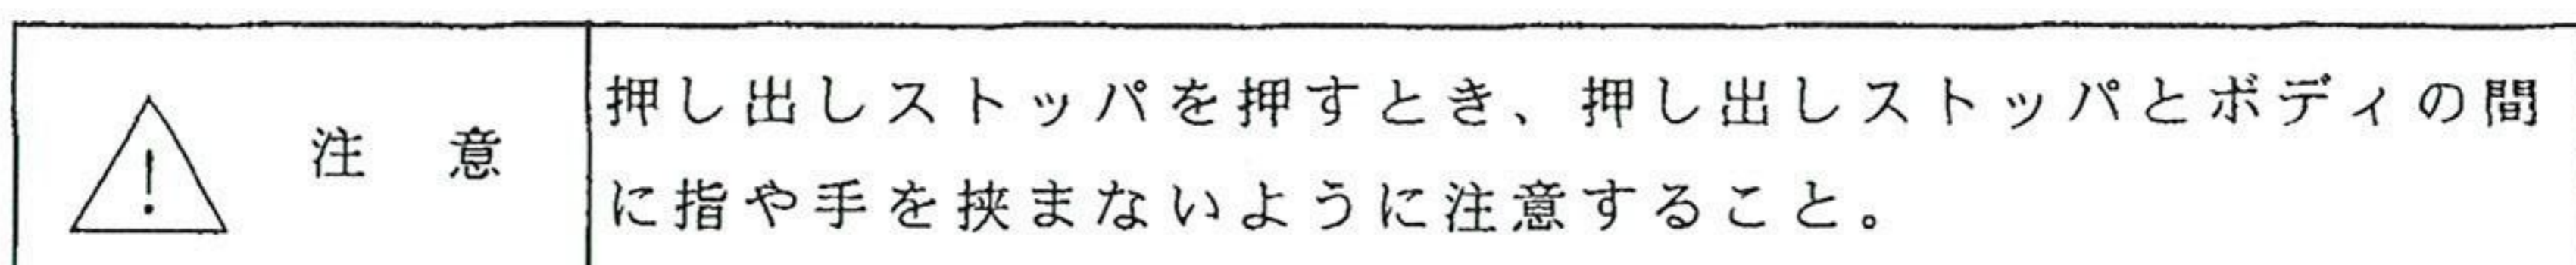 注 意
押し出しストッパを押すとき、押し出しストッパとボディの間
に指や手を挟まないように注意すること。